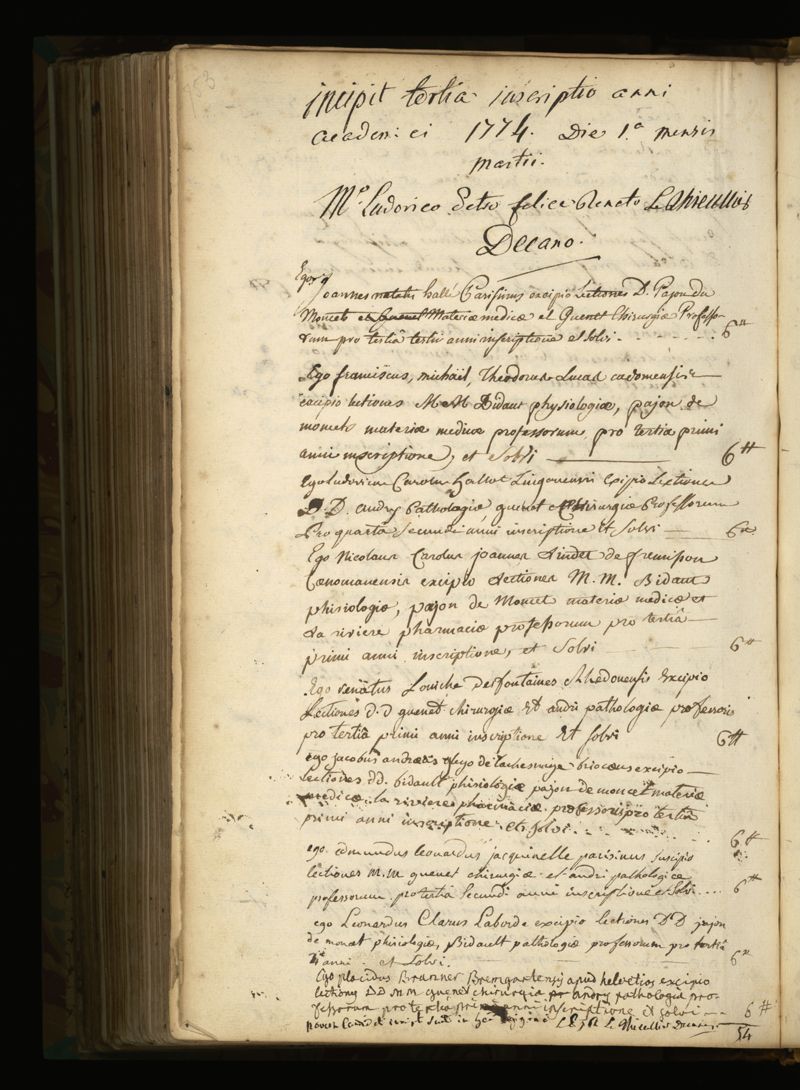 incipit tertia inscriptio anni
academici 1774. Die 1.a mensis
martii.
M.o Ludovico Petro felice Renato Le Thieullier
Decano.
Ego Joannes natalis hallé Parisinus excipio Lectiones D. Pajon du
Moncets et Guenet Materiæ medicæ et Guenet Chirurgiæ Professo-
rum pro tertiâ tertii anni inscriptione et solvi. 6tt
Ego franciscus, michaël, Theodorus Lucas cadomensis
excipio lectiones M M Bidaut physiologiæ, pajon de
moncets materiæ medicæ professorum pro tertia primi
anni inscriptione, et solvi 6tt
Ego Ludovicus Carolus hallot Lingonensis Excipio Lectiones
D.D. andry Pathologiæ guenet Chirurgiæ Professorum
Pro quarta secundi anni inscriptione Et solvi 6tt
Ego Nicolaus Carolus joannes de
Cænomanensis excipio Lectiones M.M. Bidaut
phisiologiæ, pajon de Moncet materiæ medicæ et
La riviere pharmaciæ professorum pro tertiâ
primi anni inscriptione, et solvi 6tt
Ego renatus Louiche Desfontaines Rhedonensis Excipio
Lectiones d.d guenet chirurgiæ Et andri pathologiæ professoris
pro tertiâ primi anni inscriptione Et solvi 6tt
ego jacobus andræas excipio
Lectiones dd. bidault phisiologiæ pajon de moncet materiæ
medicæ la riviere pharmaciæ professoris pro tertiâ
primi anni inscriptione et solvi. 6tt
ego edmundus leonardus jacquinelle parisinus suscipio
lectiones M.M guenet chirurgiæ et andri pathologiæ
professorum pro tertiâ secundi anni inscriptione et solvi 6tt
ego Leonardus Clarus Laborde excipio lectiones DD pajon
de moncet phisiologiæ, Bidault pathologiæ professorum pro tertiâ
anni et solvi. 6tt
Ego placidus Brunner Bremgartensis apud helvetios excipio
lectiones DD MM guenet chirurgia andry pathologia pro-
fessorum pro tertia primi anni inscriptione et solvi 6tt
in L. P. f. R. Le Thieullier Decanus. 54